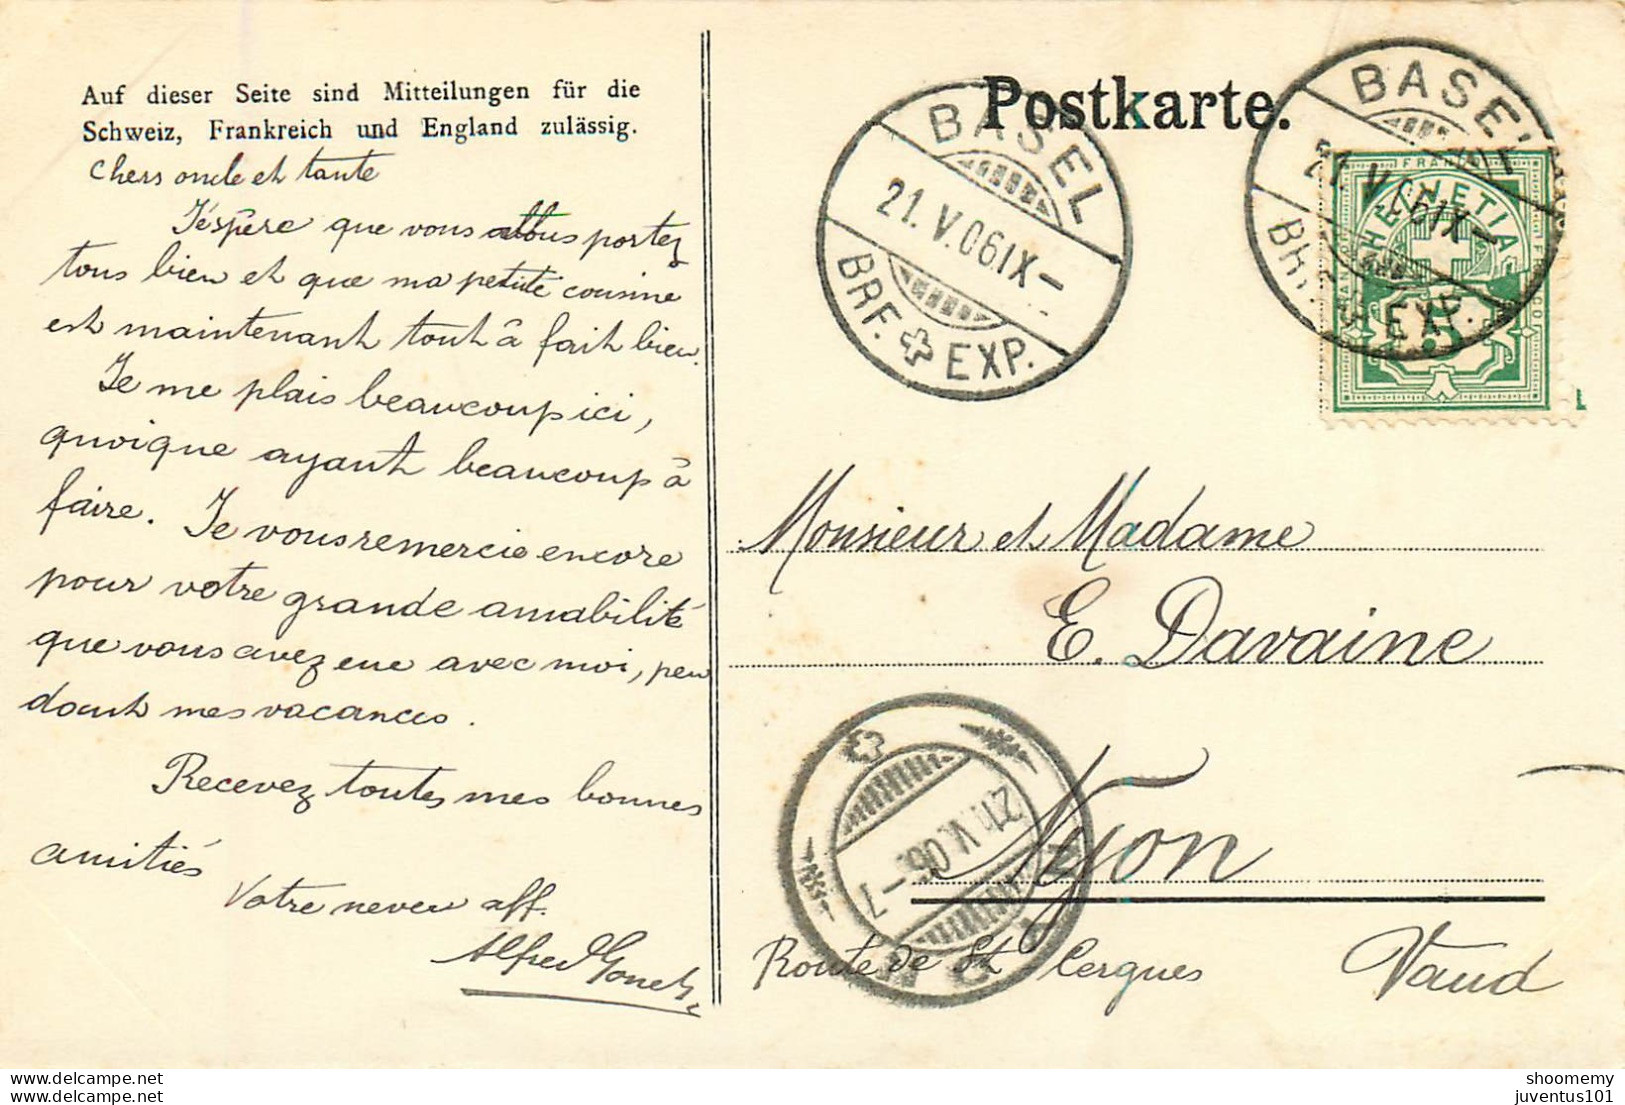 Auf dieser Seite sind Mitteilungen für die
Schweiz, Frankreich und England zulässig.
Chers oncle et tante
J'éspère que vous portez
tous bien et que ma petite cousine
est maintenant tout à fait bien.
Je me plais beaucoup ici,
quoique ayant beaucoup à
faire. Je vous remercie encore
pour votre grande amabilité
que vous avez eue avec moi, pen
dant mes vacances.
Recevez toutes mes bonnes
amitiés
Votre neveu aff.
Alfred Gonet
Postkarte.
BASEL
21.V.06IX-
BRF. EXP.
BASEL
21.V.06IX-
BRF. EXP.
FRANCO
HELVETIA
5
Monsieur et Madame
E. Davaine
Nyon
Route de St Cergues Vaud
NYON
21.V.06-7
shoomemy
www.delcampe.net
juventus101